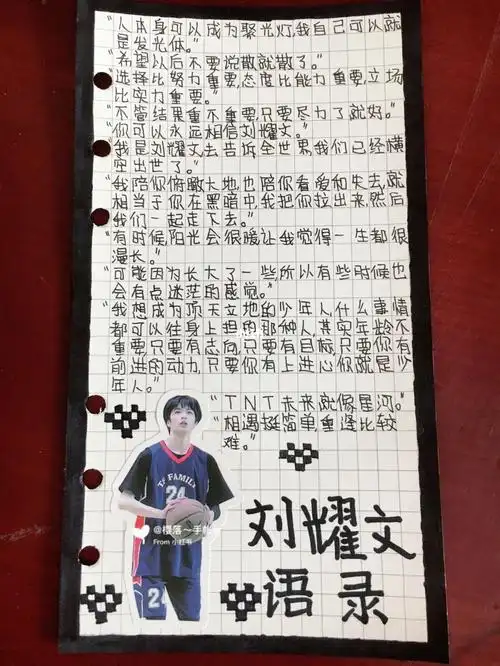 "人本身可以成为聚光灯,我自己可以就
是发光体。"
"希望以后不要说散就散了。"
"选择比努力重要,态度比能力重要,立场
比实力重要。"
"不管结果重不重要,只要尽力了就好。"
"你可以永远相信刘耀文。"
"我是刘耀文,去告诉全世界,我们已经横
空出世了。"
"我陪你俯瞰大地,也陪你看爱和失去,就
相当于你在黑暗中,我把你拉出来,然后
我们一起走下去。"
"有时候,阳光会很暖,让我觉得一生都很
漫长。"
"可能因为长大了一些,所以有些时候也
会有点迷茫的感觉。"
"我想成为顶天立地的少年人,什么事情
都可以往身上担的那种人,其实年龄不
重要,只要有志向,只要有目标,只要你有
前进的动力,只要你有上进心,你就是少
年人。"
"TNT未来就像星河。"
"相遇挺简单,重逢比较
难。"
24
@樱落~手帐
From 小红书
24
刘耀文
语录